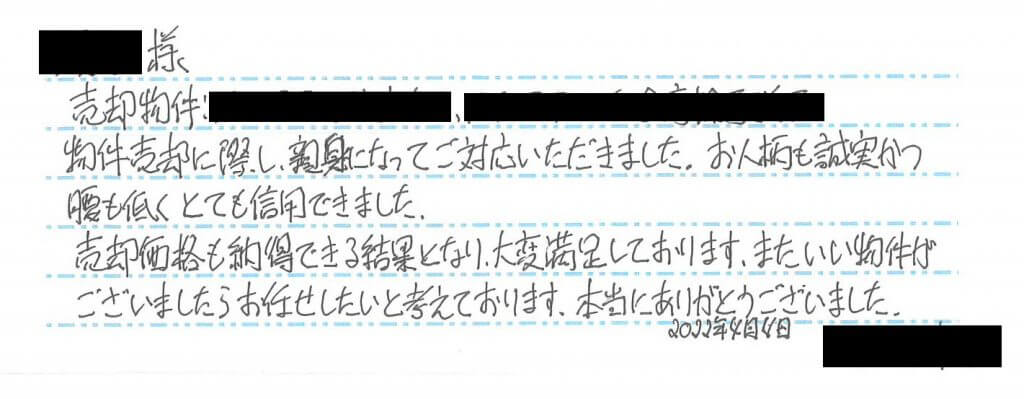 様
売却物件:、
物件売却に際し、親身になってご対応いただきました。お人柄も誠実かつ
腰も低くとても信用できました。
売却価格も納得できる結果となり、大変満足しております、またいい物件が
ございましたらお任せしたいと考えております、本当にありがとうございました。
2022年4月4日